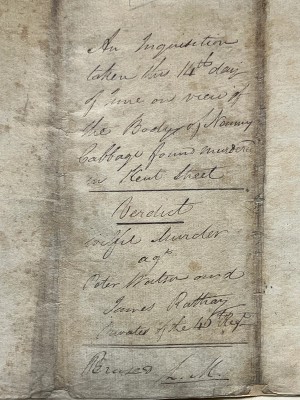 An Inquisition
taken this 14th day
of June on view of
the Body of Nanny
Cabbage found murdered
in Kent Street
Verdict
wilful Murder
agst
Peter Watson and
James Rattray
Privates of the 45th Regt
Perused L. M.